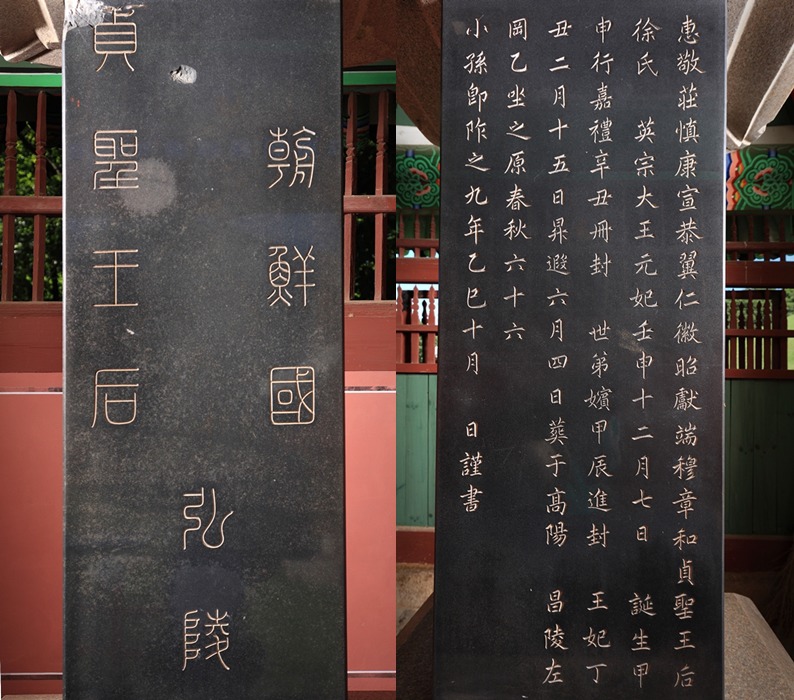 朝鮮國
貞聖王后
弘陵
惠敬莊慎康宣恭翼仁徽昭獻端穆章和貞聖王后
徐氏 英宗大王元妃壬申十二月七日 誕生甲
申行嘉禮辛丑冊封 世弟嬪甲辰進封 王妃丁
丑二月十五日昇遐六月四日葬于高陽 昌陵左
岡乙坐之原春秋六十六
小孫卽阼之九年乙巳十月 日謹書